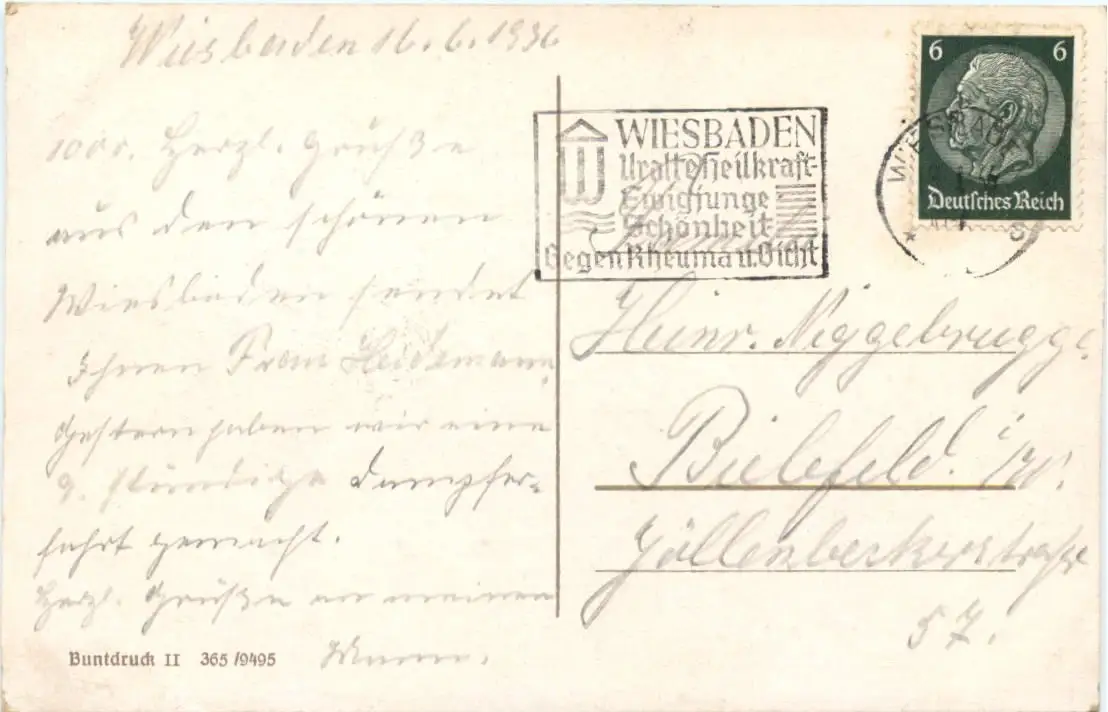 Wiesbaden 16.6.1936
1000. Herzl. Grüße
aus dem schönen
Wiesbaden sendet
Ihnen Frau Heidemann.
Gestern haben wir eine
9. stündige Dampfer-
fahrt gemacht.
Herzl. Grüße an meinen
Mann.
Buntdruck II 365/9495
WIESBADEN
Uralte Heilkraft-
Ewigjunge
Schönheit
Gegen Rheuma u. Gicht
6 6
Deutsches Reich
WIESBADEN
Heinr. Niggebrügge
Bielefeld. i/W.
Jöllenbeckerstraße
57.